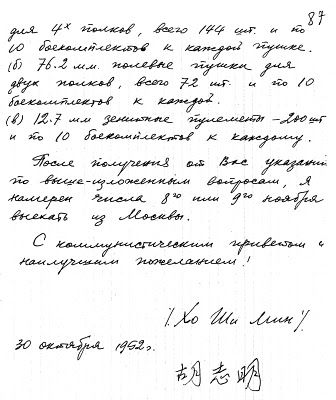 87
для 4х полков, всего 144 шт. и по
10 боекомплектов к каждой пушке.
(б) 76.2 мм. полевые пушки для
двух полков, всего 72 шт. и по 10
боекомплектов к каждой.
(в) 12.7 мм зенитные пулеметы - 200 шт
и по 10 боекомплектов к каждому.
После получения от Вас указаний
по выше-изложенным вопросам, я
намерен числа 8го или 9го ноября
выехать из Москвы.
С коммунистическим приветом и
наилучшим пожеланием!
/Хо Ши Мин/
30 октября 1952г.
胡志明